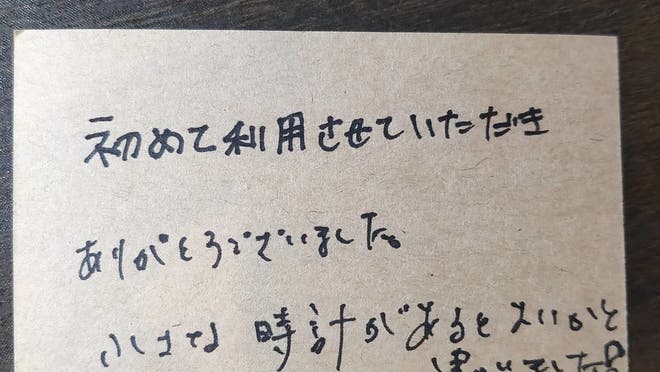 初めて利用させていただき
ありがとうございました。
小さな 時計があるとよいかと
思いました